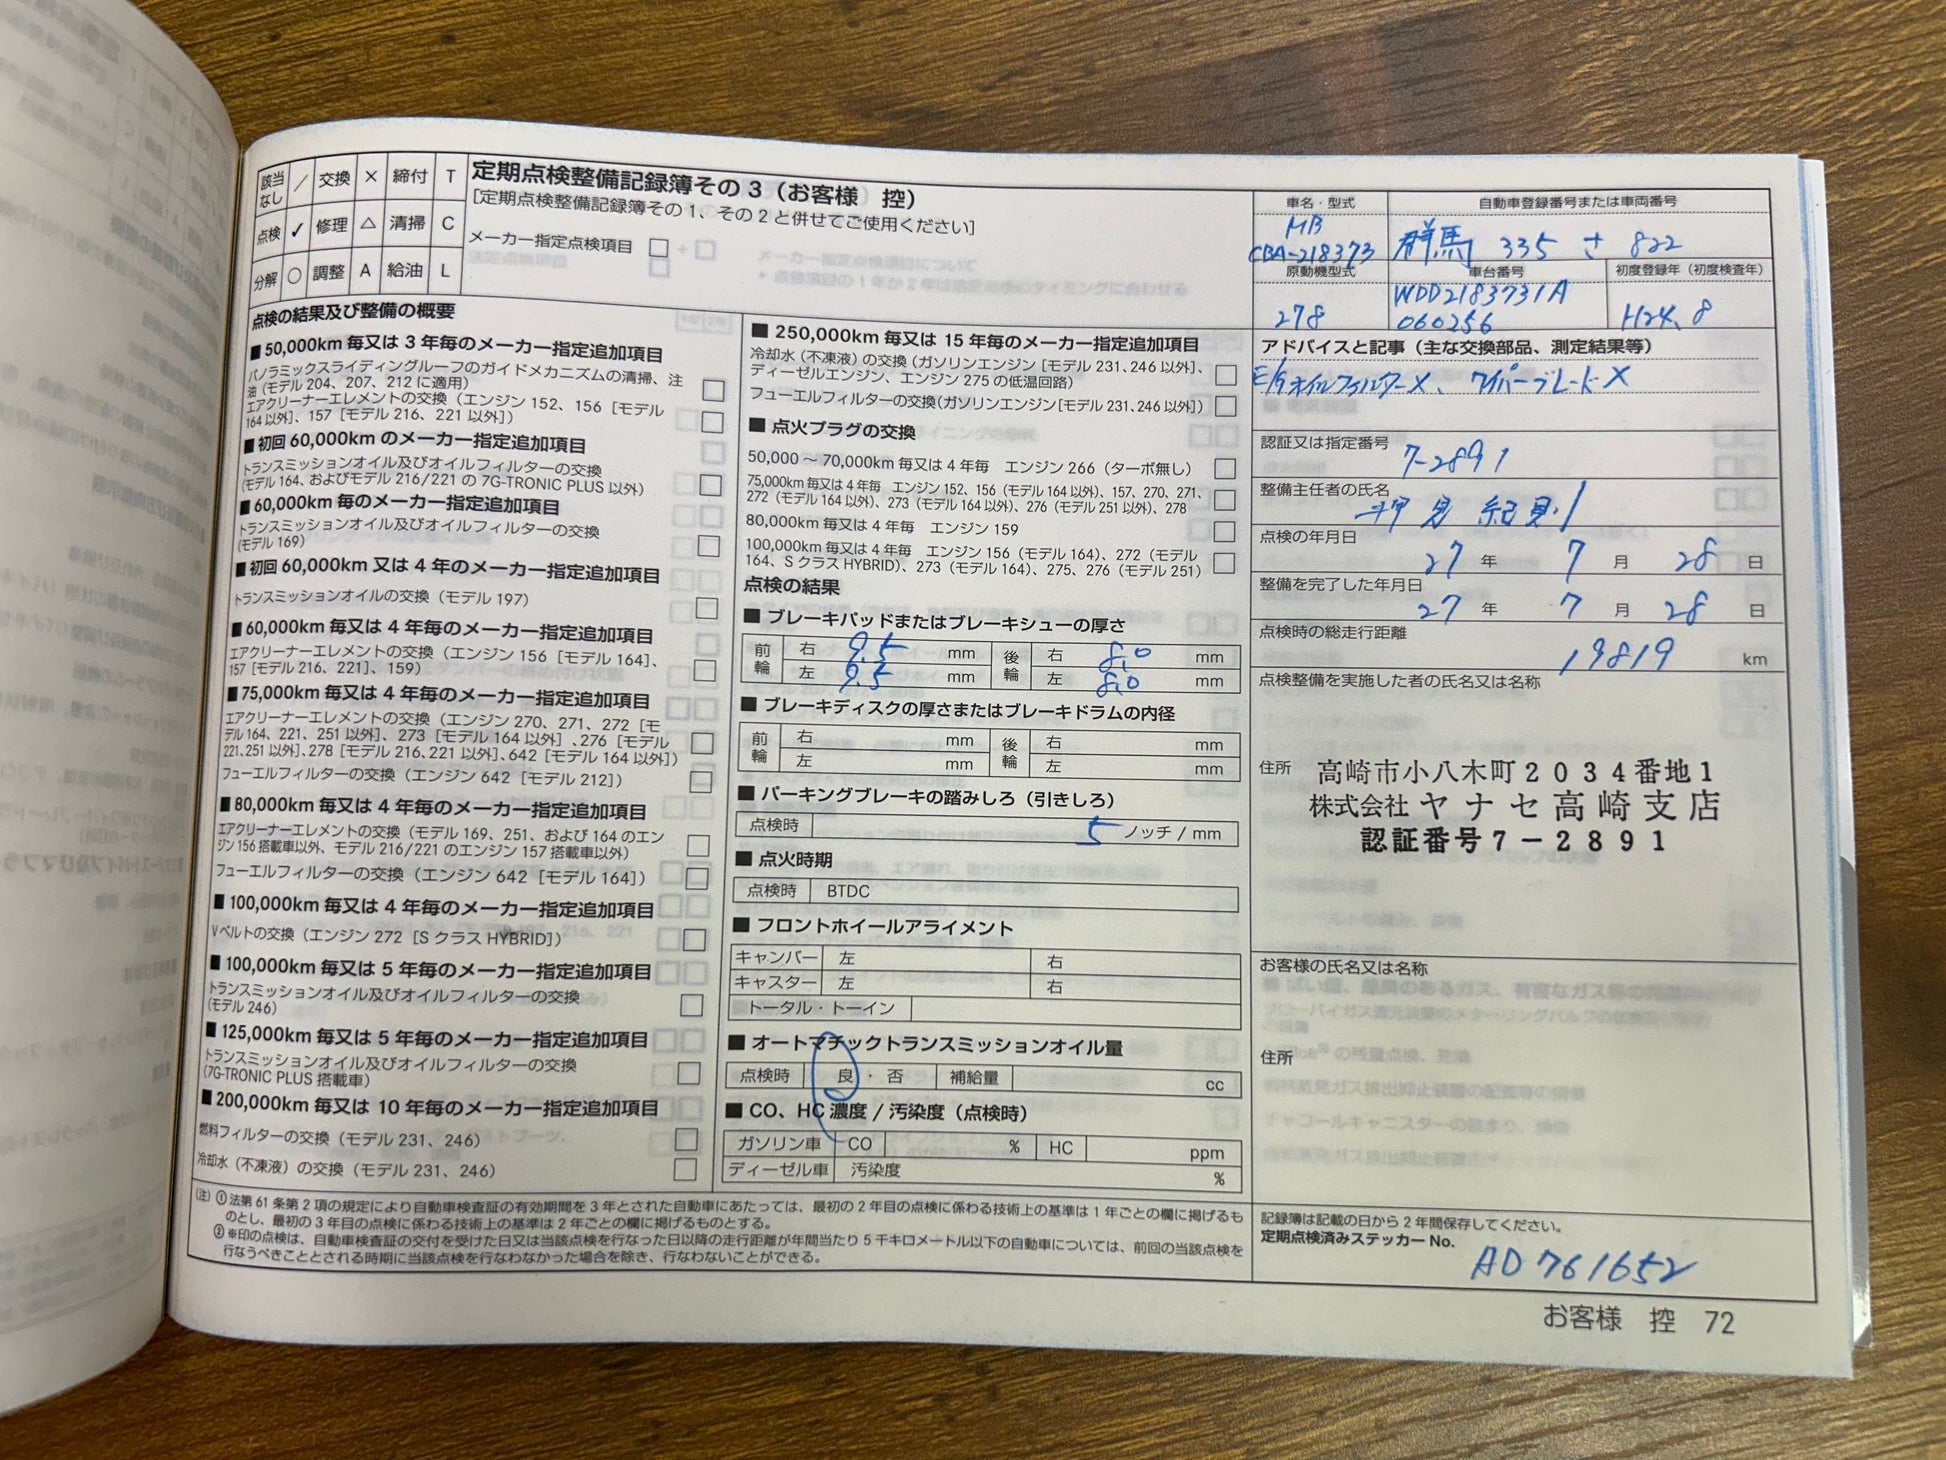 該当なし ／ 交換 × 締付 T
点検 ✓ 修理 △ 清掃 C
分解 ○ 調整 A 給油 L
定期点検整備記録簿その3（お客様　控）
［定期点検整備記録簿その1、その2と併せてご使用ください］
メーカー指定点検項目 □
点検の結果及び整備の概要
■ 50,000km 毎又は 3 年毎のメーカー指定追加項目
パノラミックスライディングルーフのガイドメカニズムの清掃、注
油（モデル 204、207、212 に適用） □
エアクリーナーエレメントの交換（エンジン 152、156［モデル
164 以外］、157［モデル 216、221 以外］） □
■ 初回 60,000km のメーカー指定追加項目
トランスミッションオイル及びオイルフィルターの交換
（モデル 164、およびモデル 216/221 の 7G-TRONIC PLUS 以外） □
■ 60,000km 毎のメーカー指定追加項目
トランスミッションオイル及びオイルフィルターの交換
（モデル 169） □
■ 初回 60,000km 又は 4 年のメーカー指定追加項目
トランスミッションオイルの交換（モデル 197） □
■ 60,000km 毎又は 4 年毎のメーカー指定追加項目
エアクリーナーエレメントの交換（エンジン 156［モデル 164］、
157［モデル 216、221］、159） □
■ 75,000km 毎又は 4 年毎のメーカー指定追加項目
エアクリーナーエレメントの交換（エンジン 270、271、272［モ
デル 164、221、251 以外］、273［モデル 164 以外］、276［モデル
221、251 以外］、278［モデル 216、221 以外］、642［モデル 164 以外］） □
フューエルフィルターの交換（エンジン 642［モデル 212］） □
■ 80,000km 毎又は 4 年毎のメーカー指定追加項目
エアクリーナーエレメントの交換（モデル 169、251、および 164 のエン
ジン 156 搭載車以外、モデル 216/221 のエンジン 157 搭載車以外） □
フューエルフィルターの交換（エンジン 642［モデル 164］） □
■ 100,000km 毎又は 4 年毎のメーカー指定追加項目
Vベルトの交換（エンジン 272［S クラス HYBRID］） □
■ 100,000km 毎又は 5 年毎のメーカー指定追加項目
トランスミッションオイル及びオイルフィルターの交換
（モデル 246） □
■ 125,000km 毎又は 5 年毎のメーカー指定追加項目
トランスミッションオイル及びオイルフィルターの交換
（7G-TRONIC PLUS 搭載車） □
■ 200,000km 毎又は 10 年毎のメーカー指定追加項目
燃料フィルターの交換（モデル 231、246） □
冷却水（不凍液）の交換（モデル 231、246） □
■ 250,000km 毎又は 15 年毎のメーカー指定追加項目
冷却水（不凍液）の交換（ガソリンエンジン［モデル 231、246 以外］、
ディーゼルエンジン、エンジン 275 の低温回路） □
フューエルフィルターの交換（ガソリンエンジン［モデル 231、246 以外］） □
■ 点火プラグの交換
50,000 ～ 70,000km 毎又は 4 年毎　エンジン 266（ターボ無し） □
75,000km 毎又は 4 年毎　エンジン 152、156（モデル 164 以外）、157、270、271、
272（モデル 164 以外）、273（モデル 164 以外）、276（モデル 251 以外）、278 □
80,000km 毎又は 4 年毎　エンジン 159 □
100,000km 毎又は 4 年毎　エンジン 156（モデル 164）、272（モデル
164、S クラス HYBRID）、273（モデル 164）、275、276（モデル 251） □
点検の結果
■ ブレーキパッドまたはブレーキシューの厚さ
前輪 右 9.5 mm 後輪 右 8.0 mm
左 9.5 mm 左 8.0 mm
■ ブレーキディスクの厚さまたはブレーキドラムの内径
前輪 右 mm 後輪 右 mm
左 mm 左 mm
■ パーキングブレーキの踏みしろ（引きしろ）
点検時 5 ノッチ / mm
■ 点火時期
点検時 BTDC
■ フロントホイールアライメント
キャンバー 左 右
キャスター 左 右
トータル・トーイン
■ オートマチックトランスミッションオイル量
点検時 良 ・ 否 補給量 cc
■ CO、HC 濃度 / 汚染度（点検時）
ガソリン車 CO % HC ppm
ディーゼル車 汚染度 %
（注）① 法第 61 条第 2 項の規定により自動車検査証の有効期間を 3 年とされた自動車にあたっては、最初の 2 年目の点検に係わる技術上の基準は 1 年ごとの欄に掲げるも
のとし、最初の 3 年目の点検に係わる技術上の基準は 2 年ごとの欄に掲げるものとする。
② ※印の点検は、自動車検査証の交付を受けた日又は当該点検を行なった日以降の走行距離が年間当たり 5 千キロメートル以下の自動車については、前回の当該点検を
行なうべきこととされる時期に当該点検を行なわなかった場合を除き、行なわないことができる。
車名・型式 自動車登録番号または車両番号
MB
CBA-218373 群馬 335 さ 822
原動機型式 車台番号 初度登録年（初度検査年）
278 WDD2183731A
060256 H24.8
アドバイスと記事（主な交換部品、測定結果等）
E/gオイルフィルターX、ワイパーブレードX
認証又は指定番号
7-2891
整備主任者の氏名
点検の年月日
27 年 7 月 28 日
整備を完了した年月日
27 年 7 月 28 日
点検時の総走行距離
19819 km
点検整備を実施した者の氏名又は名称
住所 高崎市小八木町2034番地1
株式会社 ヤナセ高崎支店
認証番号7－2891
お客様の氏名又は名称
住所
記録簿は記載の日から 2 年間保存してください。
定期点検済みステッカー No.
AD 761652
お客様　控　72